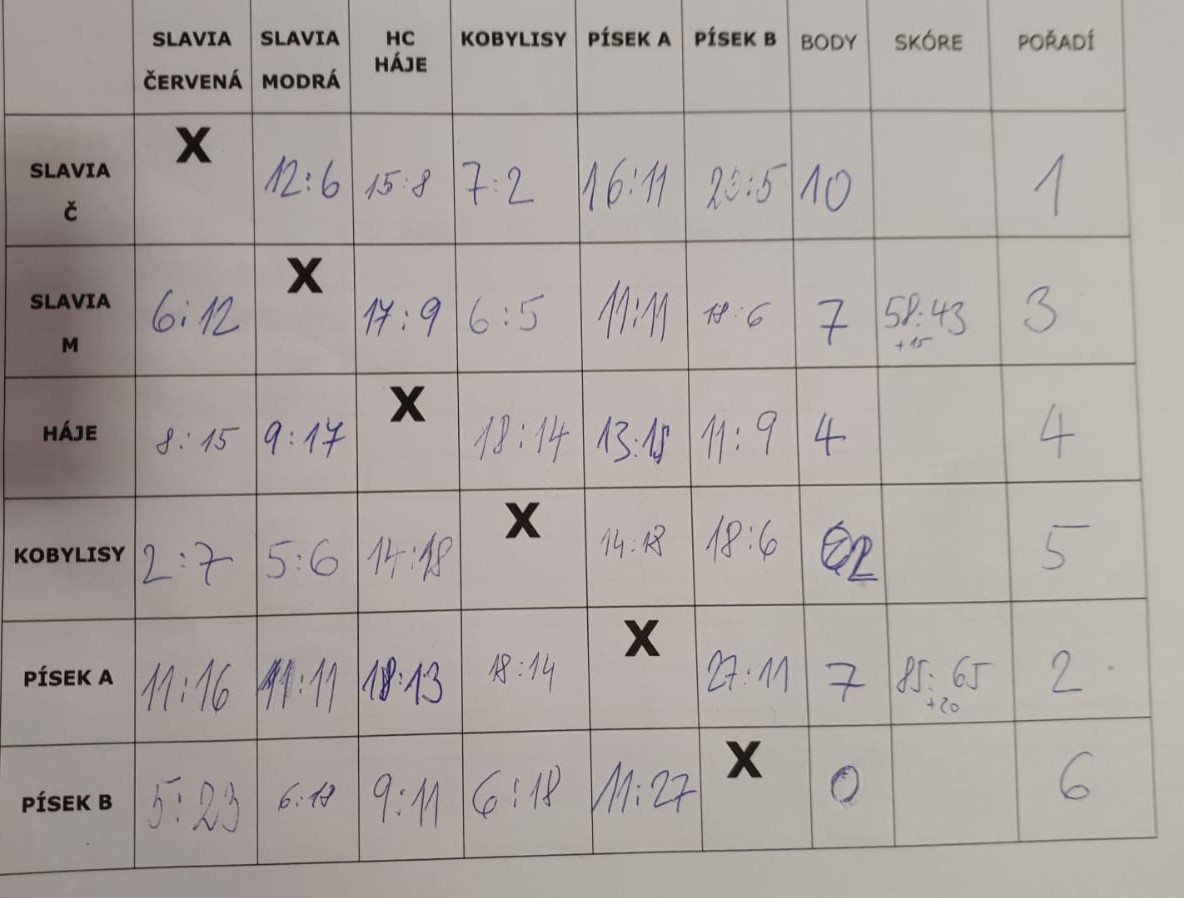 SLAVIA ČERVENÁ SLAVIA MODRÁ HC HÁJE KOBYLISY PÍSEK A PÍSEK B BODY SKÓRE POŘADÍ
SLAVIA Č X 12:6 15:8 7:2 16:11 23:5 10 1
SLAVIA M 6:12 X 17:9 6:5 11:11 18:6 7 58:43 +15 3
HÁJE 8:15 9:17 X 18:14 13:18 11:9 4 4
KOBYLISY 2:7 5:6 14:18 X 14:18 18:6 2 5
PÍSEK A 11:16 11:11 18:13 18:14 X 27:11 7 85:65 +20 2
PÍSEK B 5:23 6:18 9:11 6:18 11:27 X 0 6